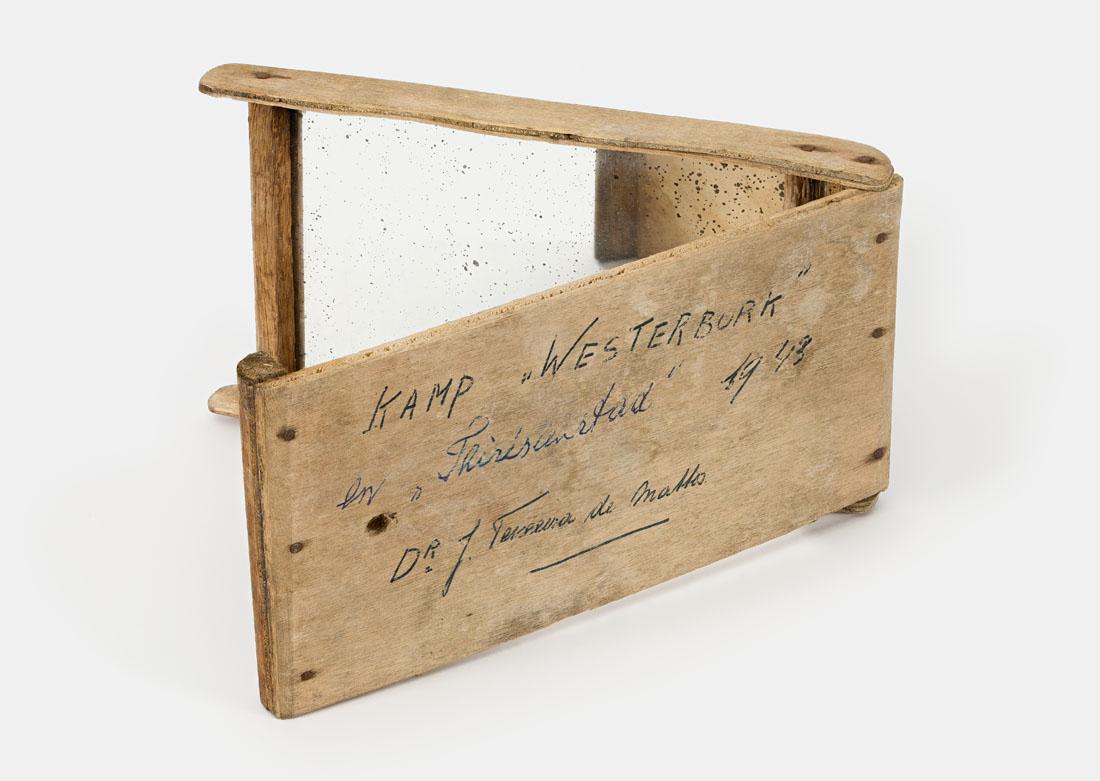 KAMP „WESTERBORK"
en „Thirésienstad" 1943
DR J. Teixeira de Mattos